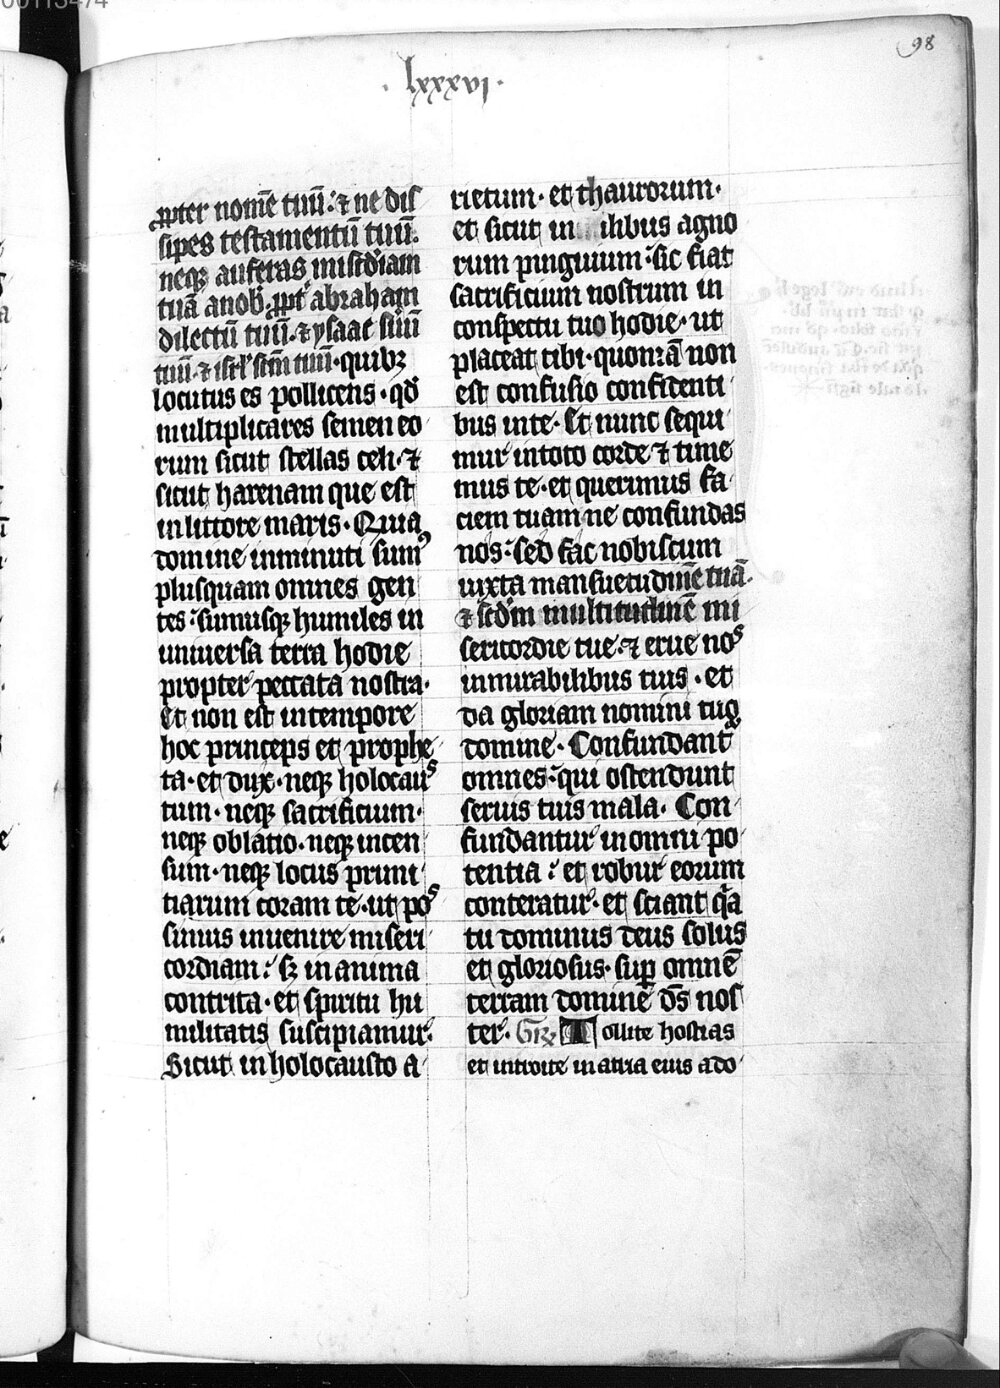 00113474
98
· lxxxvi ·
ꝓpter nomē tuū: ⁊ ne diſ
ſipes testamentū tuū.
neqꝫ auferas miſcdiam
tuā a nob ꝓpt abraham
dilectū tuū. ⁊ yſaac ſuū
tuū. ⁊ iſrl ſcm tuū · quibꝫ
locutus es pollicens · qd
multiplicares semen eo
rum sicut stellas celi · ⁊
sicut harenam que est
in littore maris · Quia
domine inminuti sumꝰ
plusquam omnes gen
tes: sumusqꝫ humiles in
uniuersa terra hodie
propter peccata nostra ·
Et non est in tempore
hoc princeps et prophe
ta · et dux · neqꝫ holocauſ
tum · neqꝫ sacrificium ·
neqꝫ oblatio · neqꝫ incen
sum · neqꝫ locus primi
tiarum coram te · ut poſ
simus inuenire miseri
cordiam: sꝫ in anima
contrita · et spiritu hu
militatis suscipiamur ·
Sicut in holocausto a
rietum · et thaurorum ·
et sicut in ilibus agno
rum pinguium: sic fiat
sacrificium nostrum in
conspectu tuo hodie · ut
placeat tibi · quoniā non
est confusio confitenti
bus in te · Et nunc sequi
mur in toto corde ⁊ time
mus te · et querimus fa
ciem tuam ne confundas
nos: sed fac nobiscum
iuxta mansuetudinē tuā ·
⁊ scdm multitudinē mi
sericordie tue · ⁊ erue noſ
in mirabilibus tuis · et
da gloriam nomini tuo
domine · Confundant
omnes: qui ostendunt
seruis tuis mala · Con
fundantur in omni po
tentia: et robur eorum
conteratur · et sciant qa
tu dominus deus solus
et gloriosus · suꝑ omnē
terram domine ds noſ
ter · Gr Tollite hostias
et introite in atria eius ado